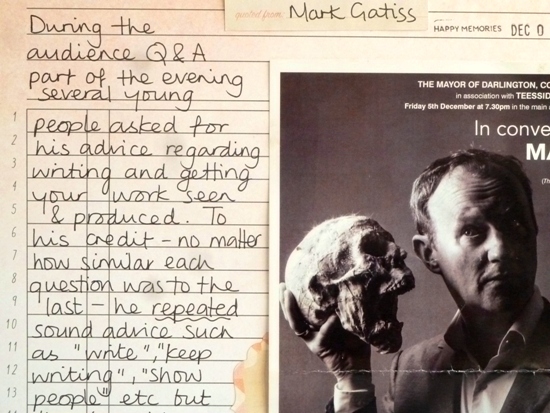 quoted from Mark Gatiss
HAPPY MEMORIES DEC 0
During the
audience Q&A
part of the evening
several young
1 people asked for
2 his advice regarding
3 writing and getting
4 your work seen
5 & produced. To
6 his credit - no matter
7 how similar each
8 question was to the
9 last - he repeated
10 sound advice such
11 as "write", "keep
12 writing", "show
13 people" etc but
THE MAYOR OF DARLINGTON, CO
in association with TEESSID
Friday 5th December at 7.30pm in the main
In conve
MA